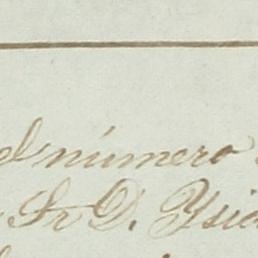 el número
Sr D. Ysid